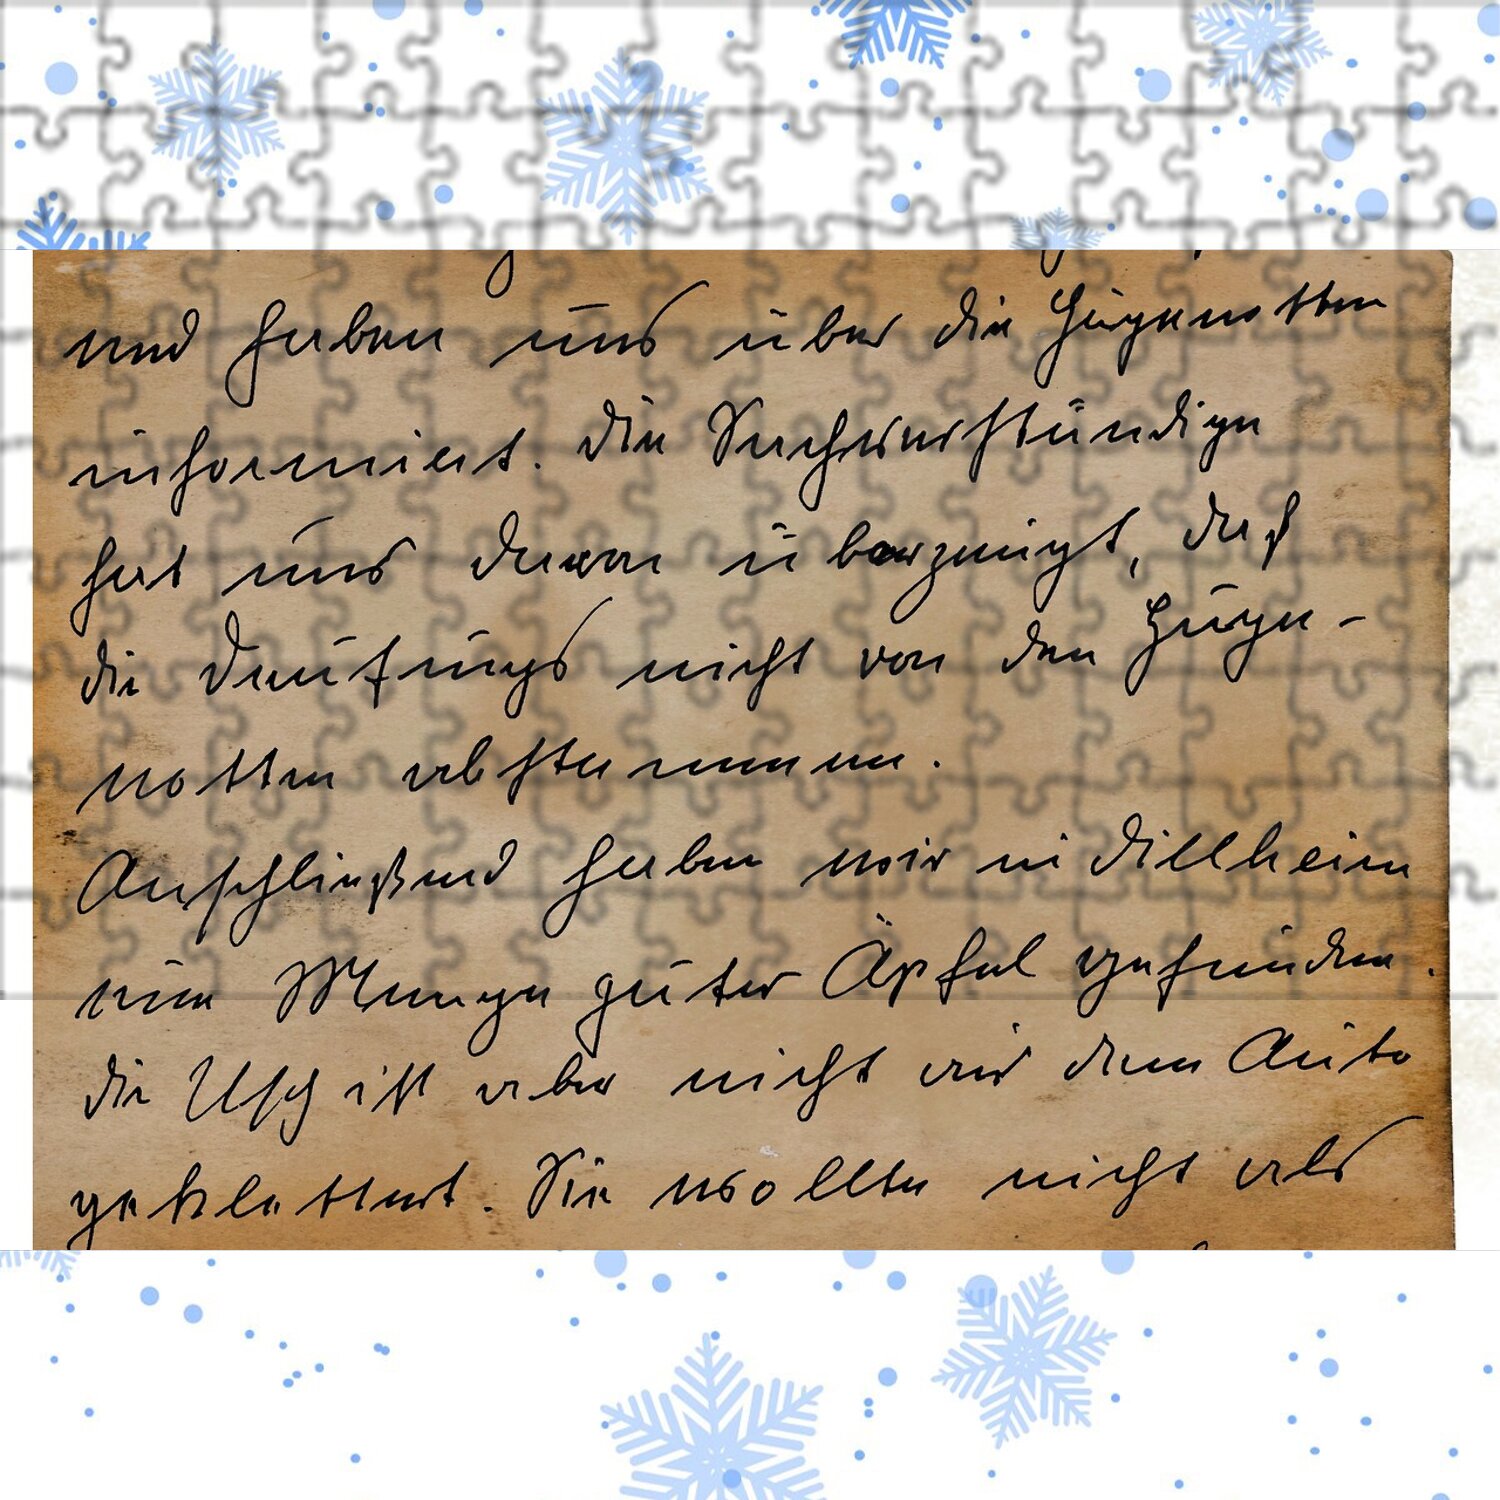 und haben uns über die Hugenotten
informiert. Die Sachverständige
hat uns davon überzeugt, daß
die nicht von den Huge-
notten abstammen.
Anschließend haben wir in Dillheim
eine Menge guter Äpfel gefunden.
die Usch ist aber nicht aus dem Auto
geklettert. Sie wollte nicht als